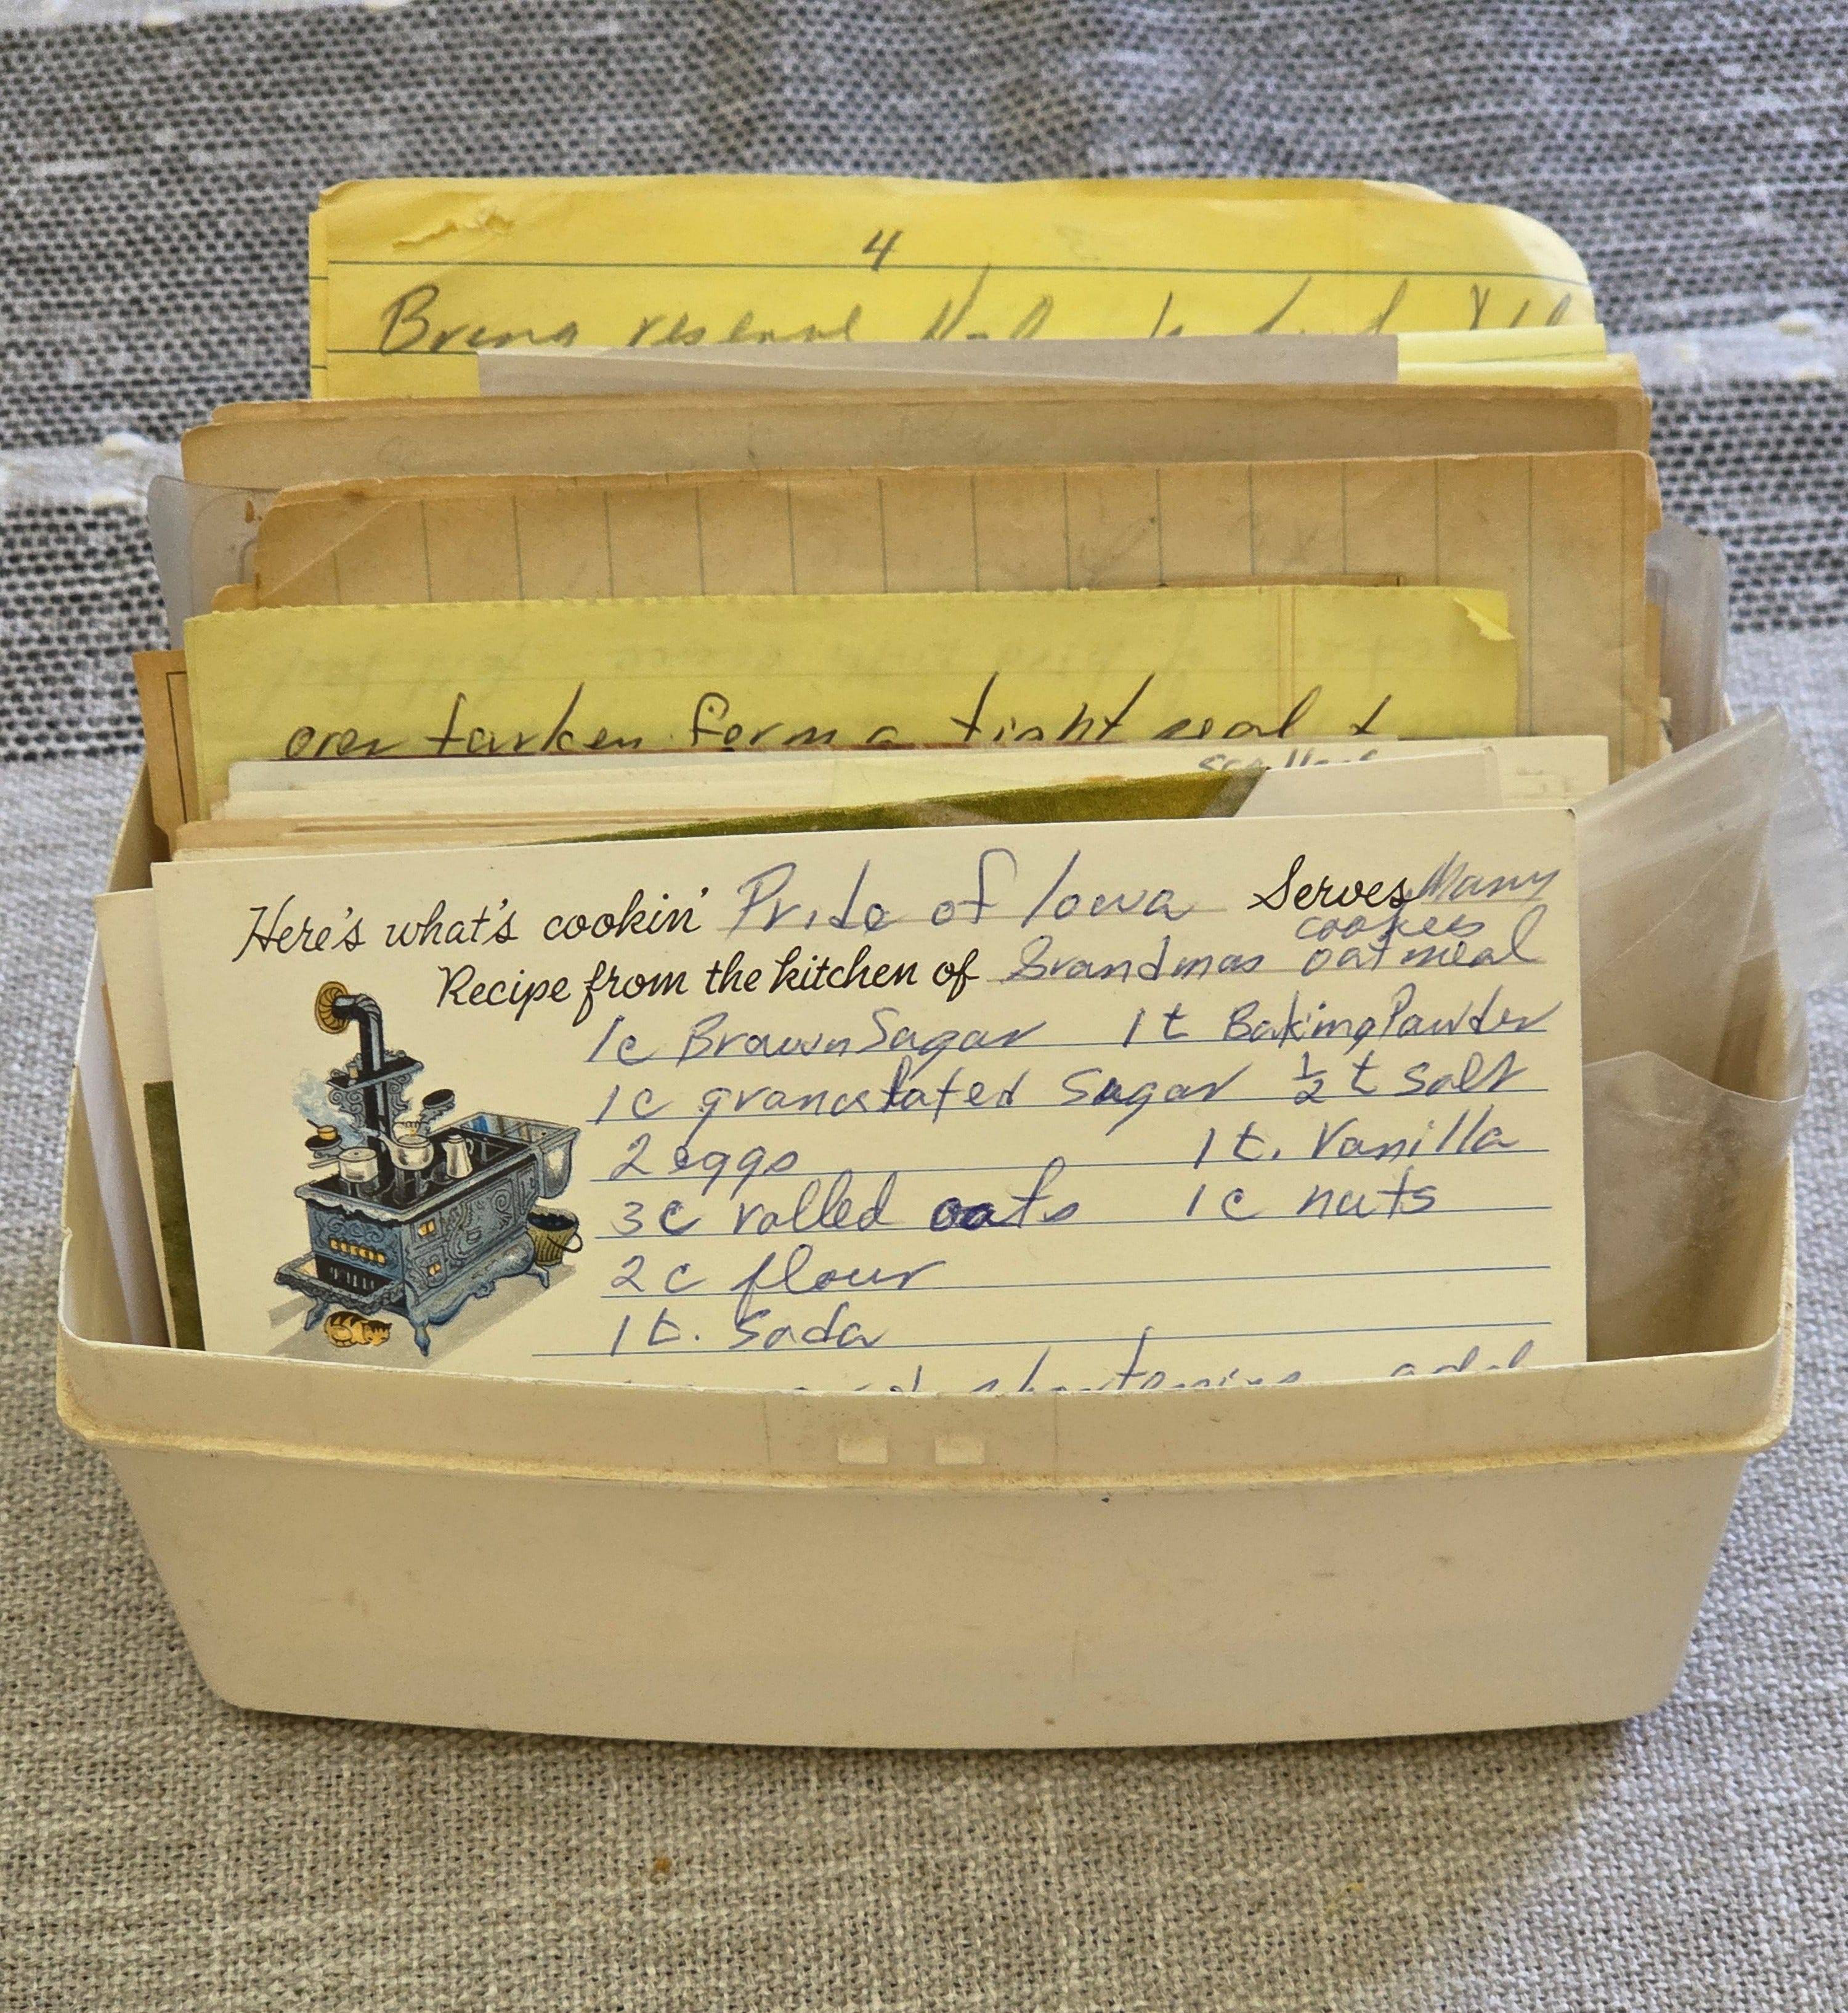 4
Bring
over turken form a tight seal +
Here's what's cookin' Pride of Iowa Serves Many
cookies
Recipe from the kitchen of Grandmas oatmeal
1c Brown Sugar 1t Baking Powder
1c granulated Sugar ½ t Salt
2 eggs 1t. Vanilla
3c rolled oats 1c nuts
2c flour
1t. Soda
shortening add